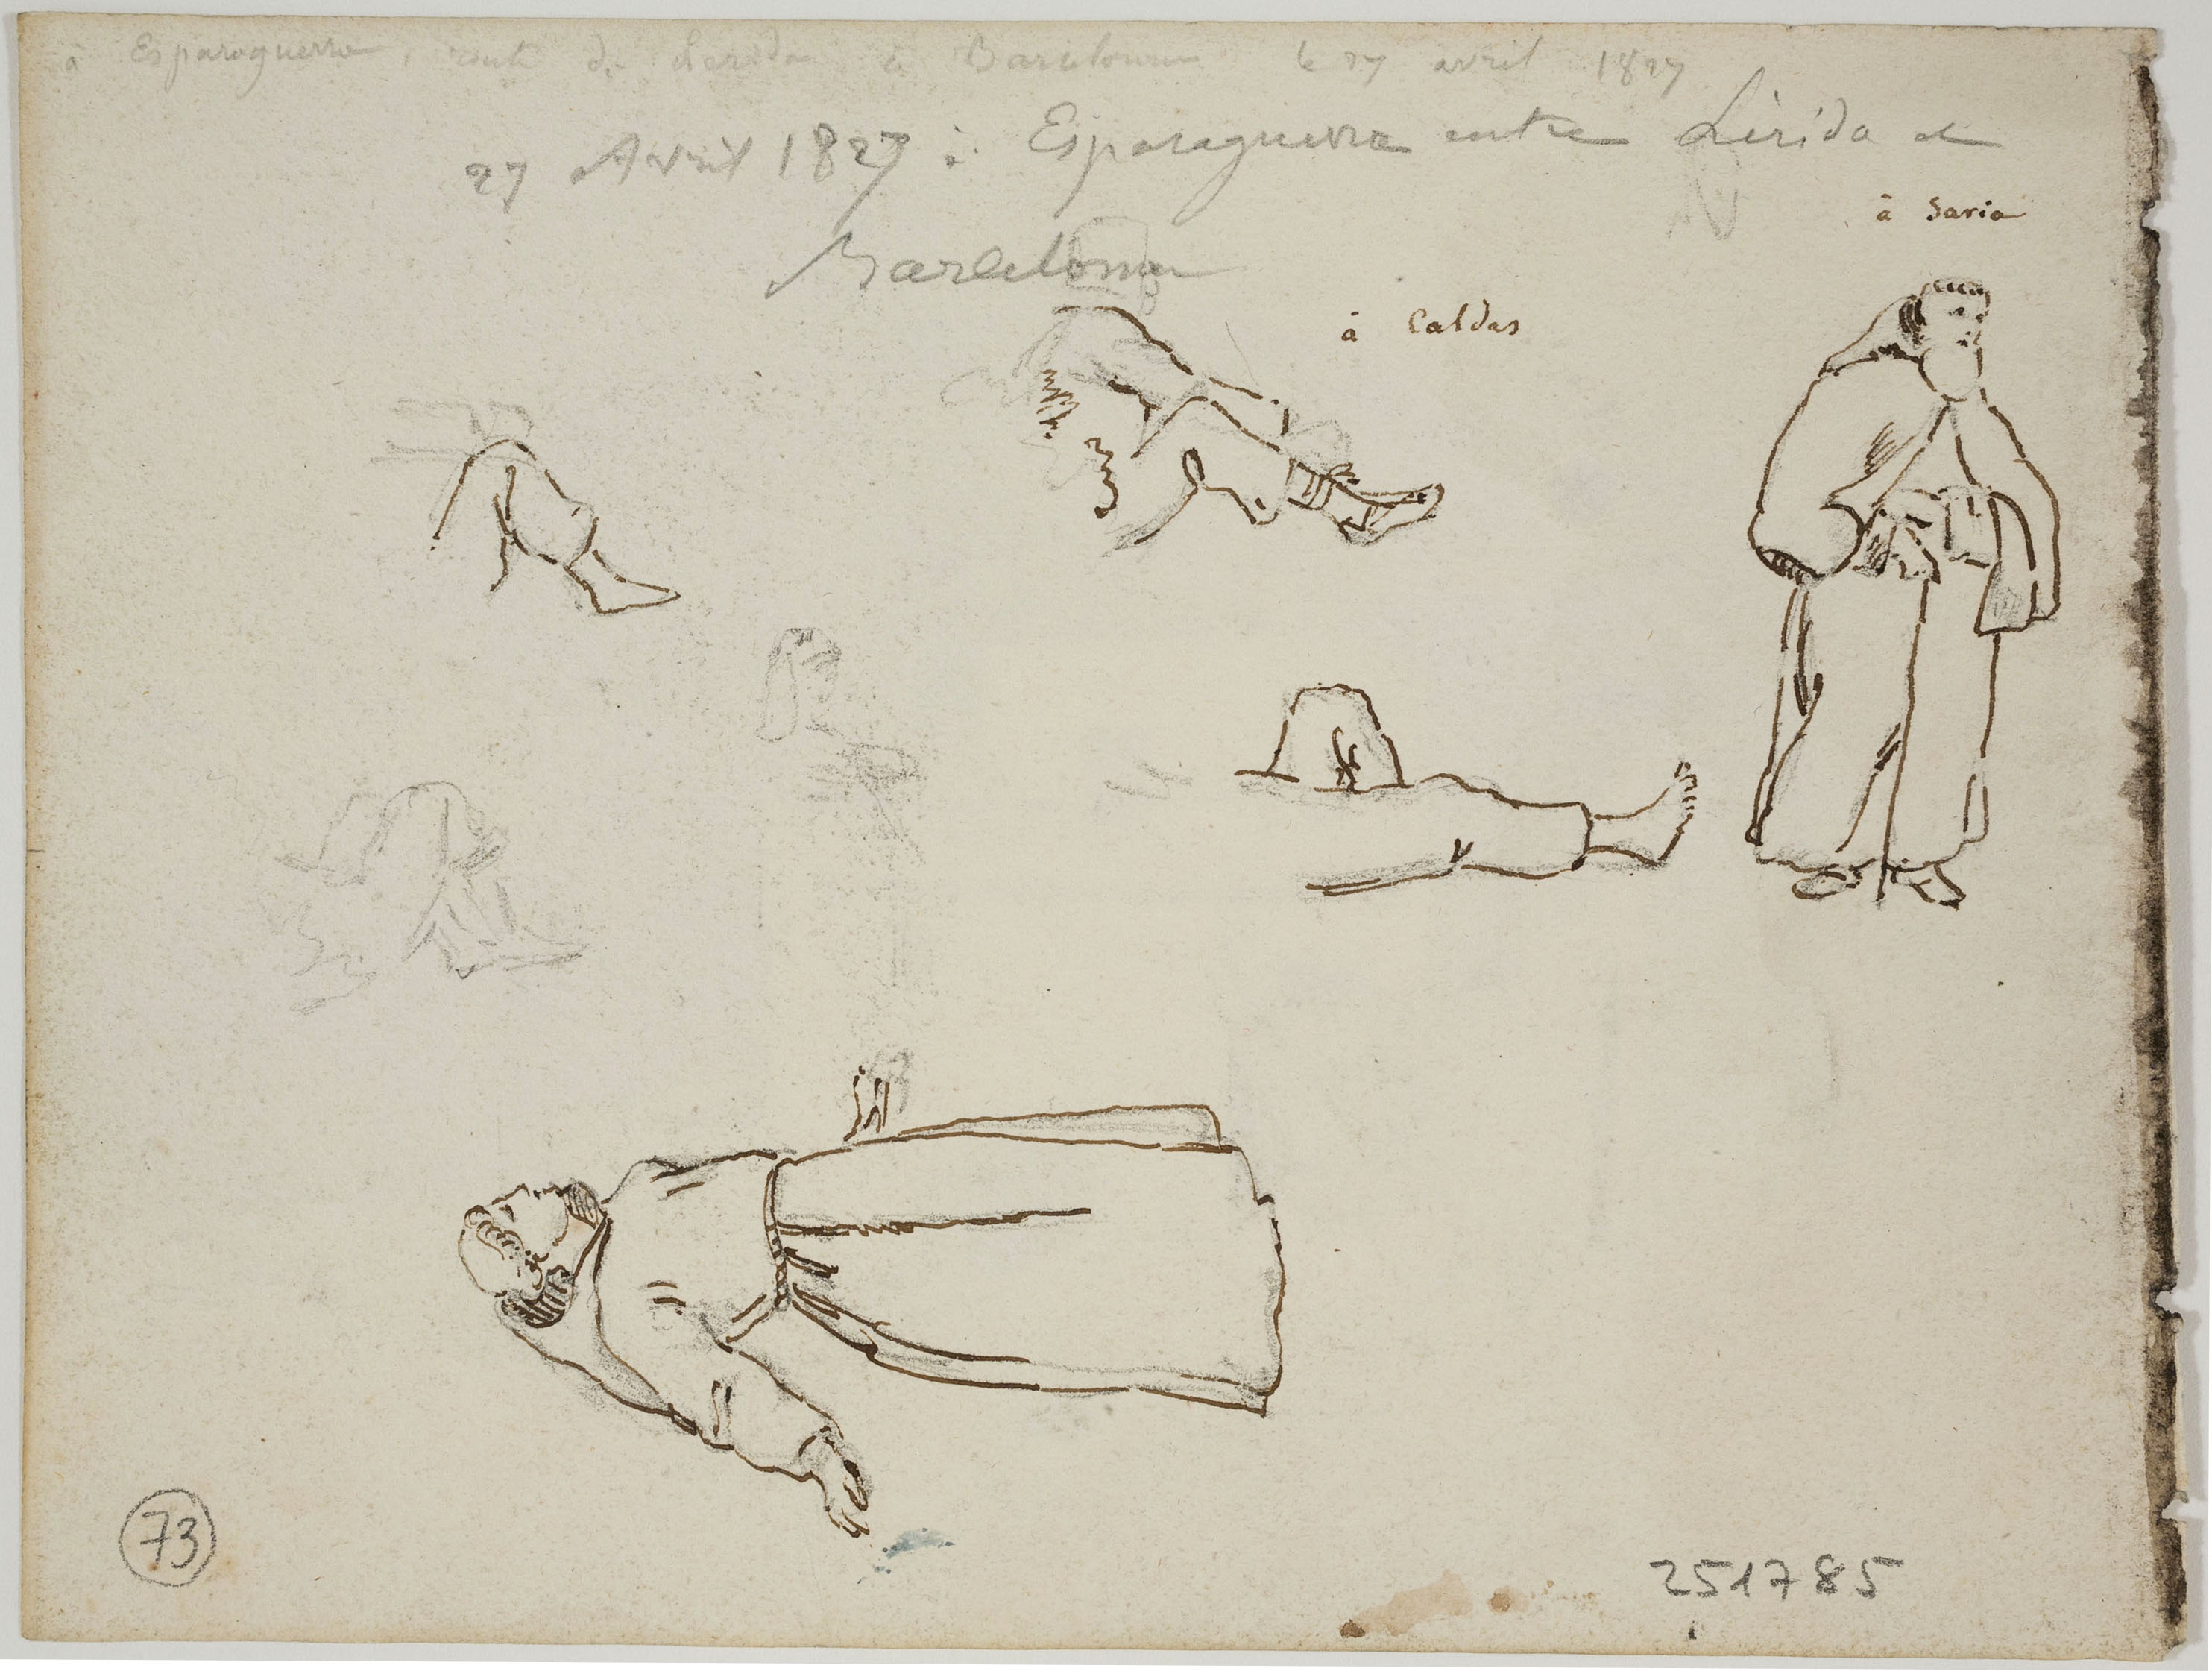 à Esparaguerra, route de Lerida à Barcelonne le 27 avril 1827
27 Avril 1827 à Esparaguerra entre Lérida et
Barcelone
à Saria
à Caldas
73
251785